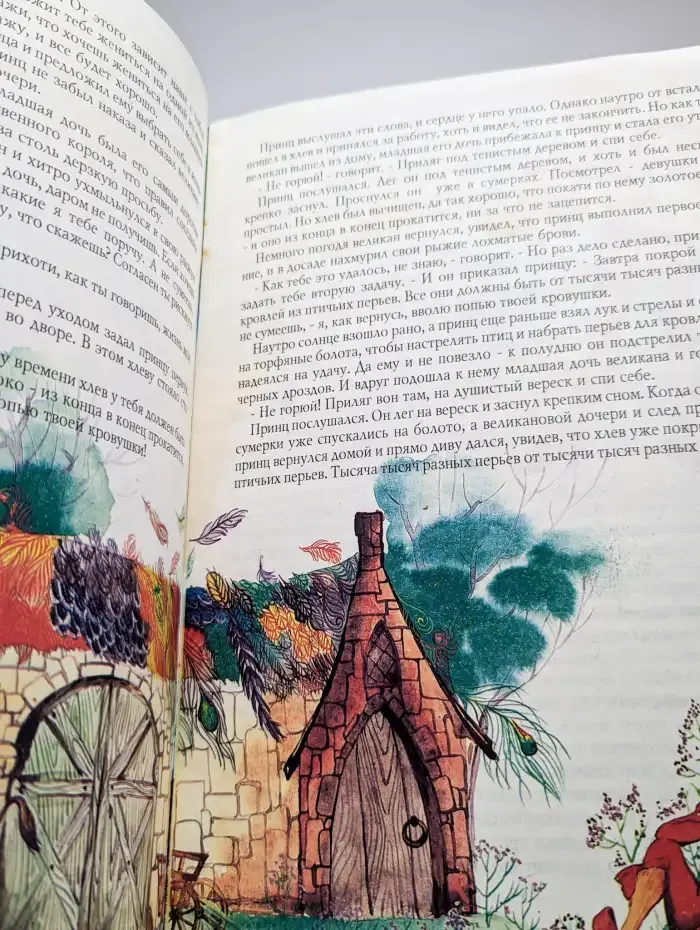 От этого зависит наша с
жит тебе жениться на одной
ажи, что хочешь жениться на его
ажу, и все будет хорошо.
ца и предложил ему выбрать себе
инц не забыл наказа и сказал
очери.
ладшая дочь была его самым
венного короля, что правил
за столь дерзкую просьбу.
н и хитро ухмыльнулся в свою
дочь, даром не получишь. Если
какие я тебе поручу. А не
у, что скажешь? Согласен ты
рихоти, как ты говоришь, жизнь
перед уходом задал принцу
во дворе. В этом хлеву стояло
у времени хлев у тебя должен быть
око - из конца в конец прокатится,
опью твоей кровушки!
Принц выслушал эти слова, и сердце у него упало. Однако наутро от встал
пошел в хлев и принялся за работу, хоть и видел, что ее не закончить. Но как
великан вышел из дому, младшая его дочь прибежала к принцу и стала его ут
- Не горюй! - говорит. - Приляг под тенистым деревом и спи себе.
Принц послушался. Лег он под тенистым деревом, и хоть и был несп
крепко заснул. Проснулся он уже в сумерках. Посмотрел - девушки
простыл. Но хлев был вычищен, да так хорошо, что покати по нему золотое
- и оно из конца в конец прокатится, ни за что не зацепится.
Немного погодя великан вернулся, увидел, что принц выполнил первое
ние, и в досаде нахмурил свои рыжие лохматые брови.
- Как тебе это удалось, не знаю, - говорит. - Но раз дело сделано, при
задать тебе вторую задачу. - И он приказал принцу: - Завтра покрой
кровлей из птичьих перьев. Все они должны быть от тысячи тысяч разн
не сумеешь, - я, как вернусь, вволю попью твоей кровушки.
Наутро солнце взошло рано, а принц еще раньше взял лук и стрелы и
на торфяные болота, чтобы настрелять птиц и набрать перьев для кровл
надеялся на удачу. Да ему и не повезло - к полудню он подстрелил
черных дроздов. И вдруг подошла к нему младшая дочь великана и го
- Не горюй! Приляг вон там, на душистый вереск и спи себе.
Принц послушался. Он лег на вереск и заснул крепким сном. Когда
сумерки уже спускались на болото, а великановой дочери и след пр
принц вернулся домой и прямо диву дался, увидев, что хлев уже покр
птичьих перьев. Тысяча тысяч разных перьев от тысячи тысяч разных